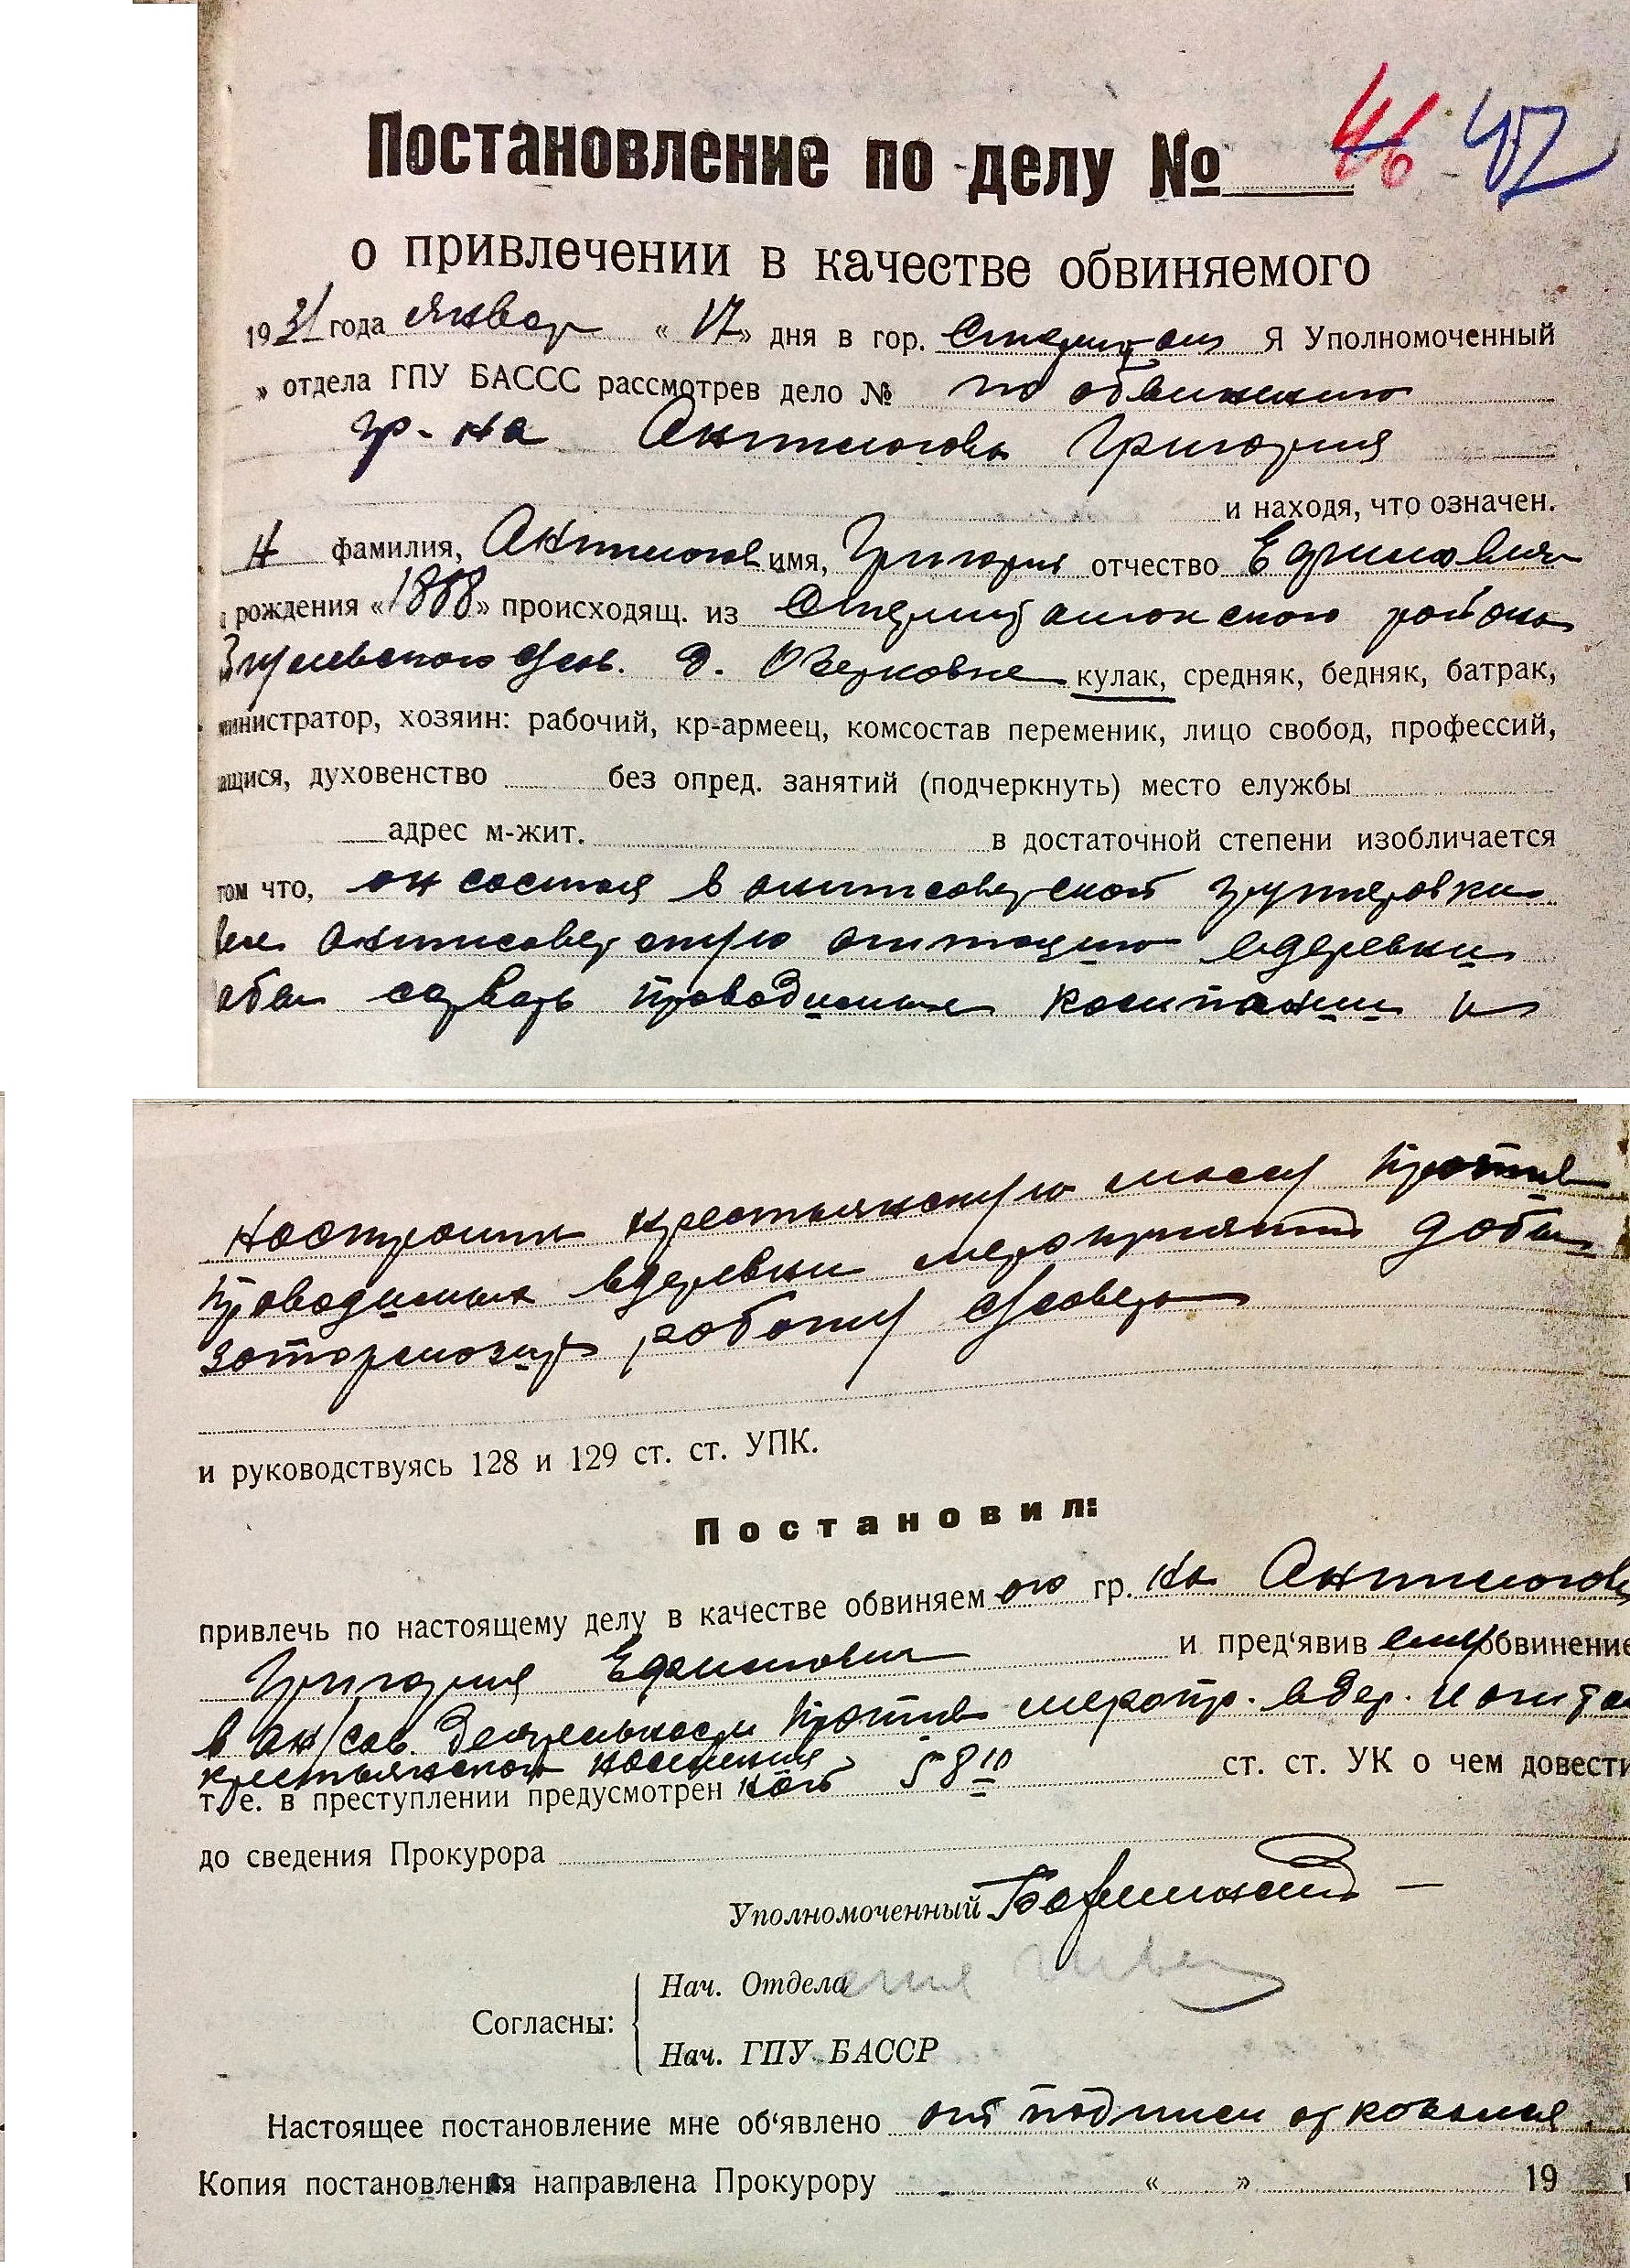 46 47
Постановление по делу №
о привлечении в качестве обвиняемого
1931 года Январ « 17 » дня в гор. Стерлитам Я Уполномоченный
» отдела ГПУ БАССС рассмотрев дело № по обвинению
гр-на Антипова Григория
и находя, что означен.
Н фамилия, Антипов имя, Григория отчество Ефимовия
рождения «1888» происходящ. из Стерлитамакского района
сов. д. Озерковке кулак, средняк, бедняк, батрак,
министратор, хозяин: рабочий, кр-армеец, комсостав переменик, лицо свобод, профессий,
ащися, духовенство без опред. занятий (подчеркнуть) место елужбы
адрес м-жит. в достаточной степени изобличается
том что, он состоя в антисоветской группировки
вел антисоветскую агитацию вдеревни
абы сорвать проводимые компании и
настроить крестьянскую массу против
проводимых вдеревни мероприятий дабы
затормозить работу с/совета
и руководствуясь 128 и 129 ст. ст. УПК.
Постановил:
привлечь по настоящему делу в качестве обвиняем ого гр. на Антипова
Григория Ефимовия и пред‘явив ему обвинение
в ан/сов. деятельности против меропр. вдер. и агитац
крестьянского населения
т. е. в преступлении предусмотрен ной 58 10 ст. ст. УК о чем довести
до сведения Прокурора
Уполномоченный
Согласны:
Нач. Отдела
Нач. ГПУ БАССР
Настоящее постановление мне об‘явлено от подписи отказался
Копия постановления направлена Прокурору « » 19